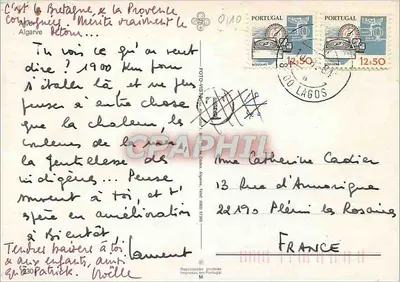 c'est la Bretagne, & la Provence
conjuguées. Mérite vraiment le
détour...
Algarve
Tu vois ce qu'on veut
dire? 1900 Km pour
s'étaler là, et ne plus
penser à autre chose
que la chaleur, les
couleurs de la
la gentillesse des
indigènes... Pense
souvent à toi, et t'
espère en amélioration
à Bientôt,
Laurent
Tendres baisers à toi
& aux enfants, ainsi
qu'à Patrick. Noëlle
PORTUGAL
12$50
PORTUGAL
12$50
DO LAGOS
CPAPHIL
Mme Catherine Cadiou
13 Rue d'Armorique
22190 Plérin les Rosaires
FRANCE